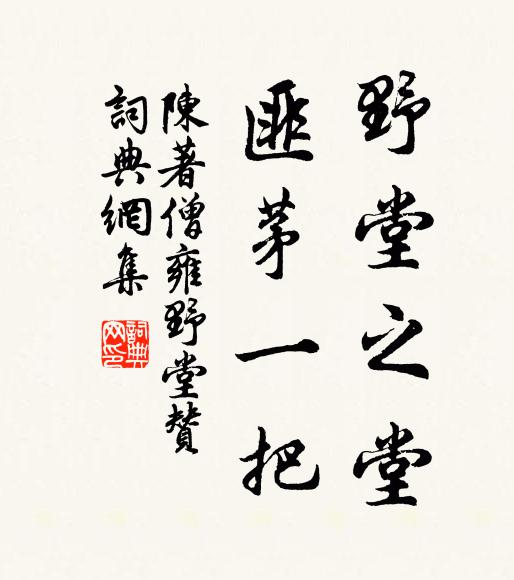 野堂之堂
匪茅一把
陳著僧雍野堂贊
詞典網集
詞典网印